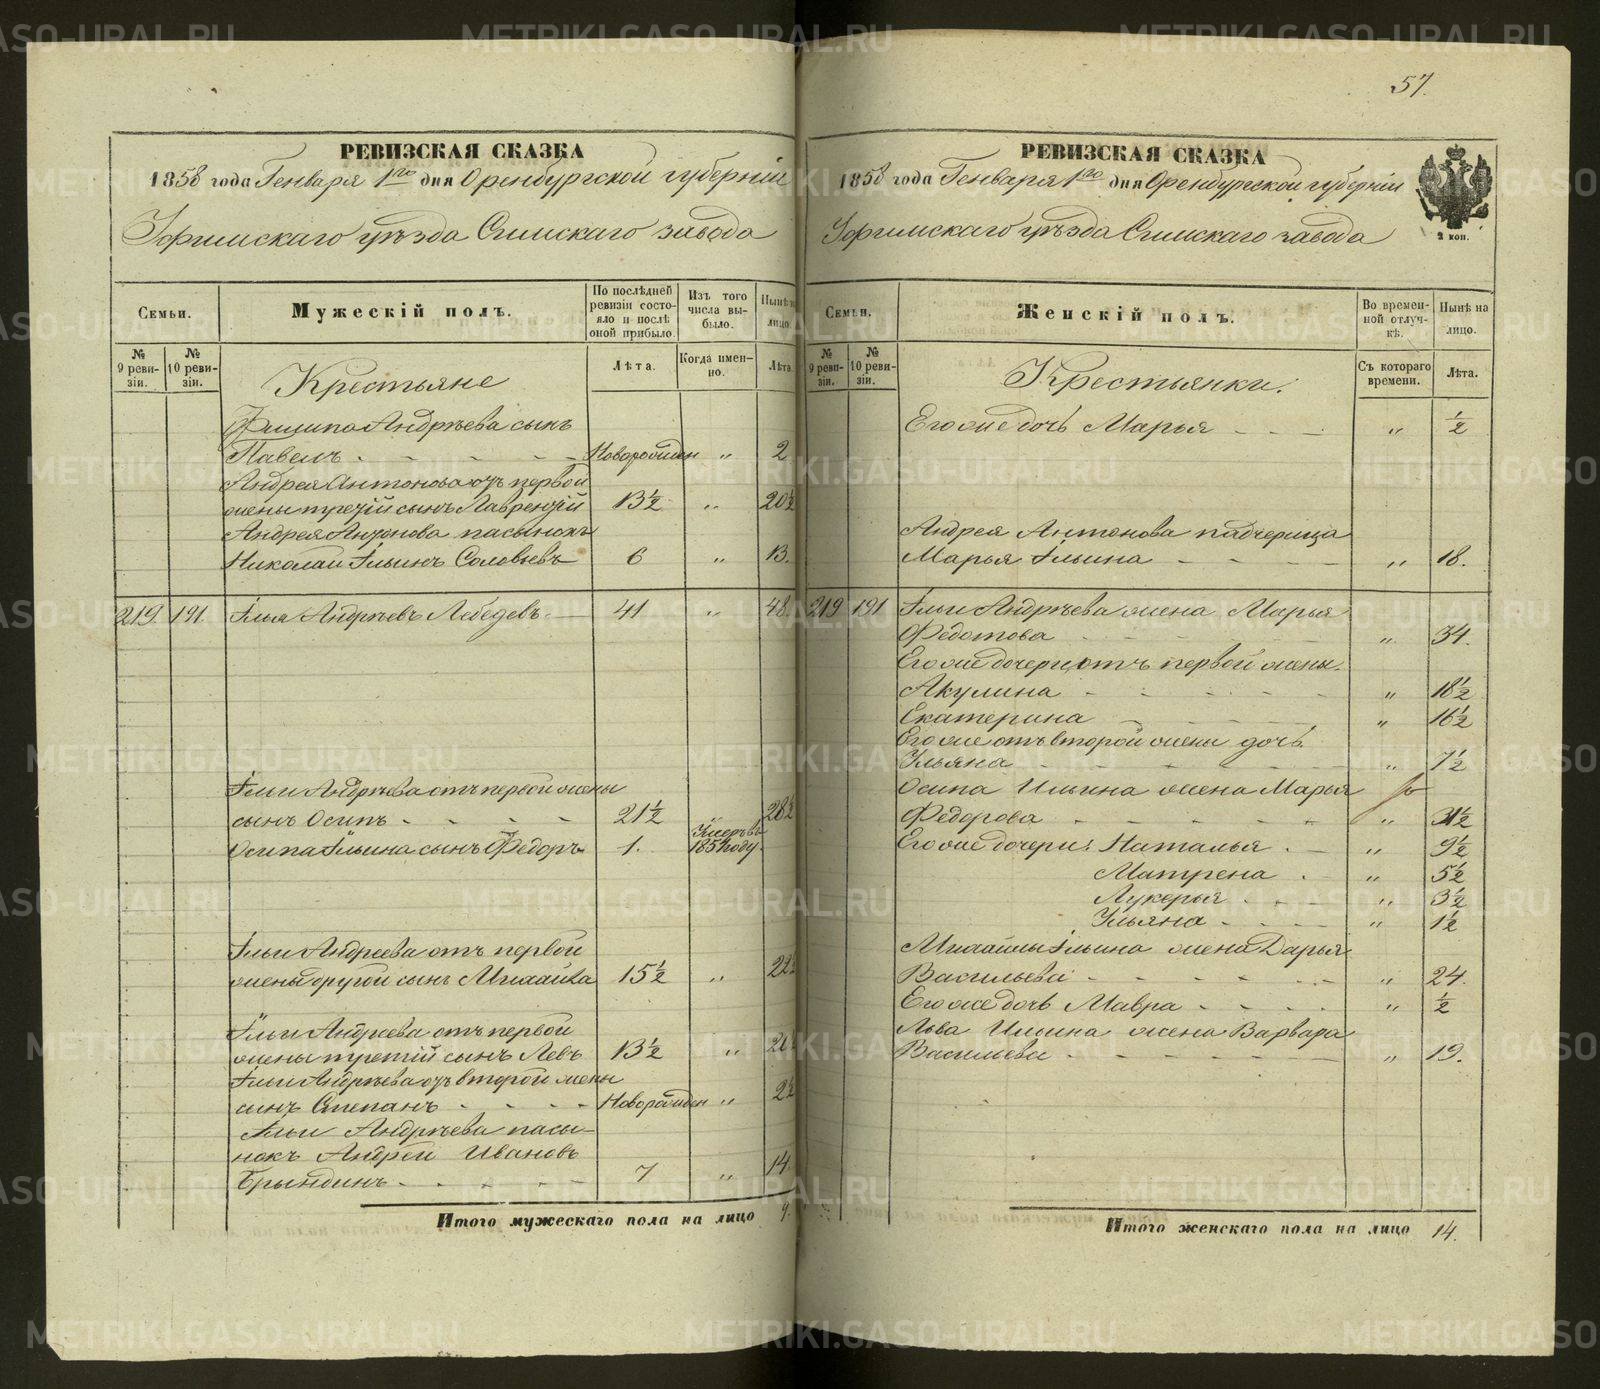 57.
РЕВИЗСКАЯ СКАЗКА
1858 года Генваря 1го дня Оренбургской губерніи
Уфимскаго уѣзда Симскаго завода
Семьи.
Мужескій полъ.
По послѣдней ревизіи состояло и послѣ оной прибыло.
Изъ того числа выбыло.
Нынѣ на лицо.
№ 9 ревизіи.
№ 10 ревизіи.
Лѣта.
Когда именно.
Лѣта.
Крестьяне
Филипа Андрѣева сынъ
Павелъ - - - - - Новорожден „ 2
Андрея Антонова отъ первой
жены третій сынъ Лаврентій 13½ „ 20½
Андрея Антонова пасынокъ
Николай Ильинъ Соловьевъ 6 „ 13.
219. 191. Илья Андрѣевъ Лебедевъ. 41 „ 48.
Ильи Андрѣева отъ первой жены
сынъ Осипъ - - - - 21½ „ 28½
Осипа Ильина сынъ Федоръ 1. Умеръ въ 1851 году.
Ильи Андреева отъ первой
жены другой сынъ Михайла 15½ „ 22½
Ильи Андреева отъ первой
жены третій сынъ Левъ 13½ „ 20½
Ильи Андрѣева отъ второй жены
сынъ Степанъ - - - Новорожден „ 2½
Ильи Андрѣева пасы-
нокъ Андрей Ивановъ
Брындинъ - - - - 7 „ 14.
Итого мужескаго пола на лицо 9.
РЕВИЗСКАЯ СКАЗКА
1858 года Генваря 1го дня Оренбургской губерніи
Уфимскаго уѣзда Симскаго завода
2 коп.
Семьи.
Женскій полъ.
Во временной отлучкѣ.
Нынѣ на лицо.
№ 9 ревизіи.
№ 10 ревизіи.
Съ котораго времени.
Лѣта.
Крестьянки.
Его же дочь Марья - - - „ ½
Андрея Антонова падчерица
Марья Ильина - - - - „ 18.
219 191 Ильи Андрѣева жена Марья
Федотова - - - - - „ 34.
Его же дочери отъ первой жены.
Акулина - - - - - „ 18½
Екатерина - - - - „ 16½
Его же отъ второй жены дочь
Ульяна - - - - - „ 7½
Осипа Ильина жена Марья
Федорова - - - - - „ 31½
Его же дочери: Наталья . - „ 9½
Матрена . - „ 5½
Лукерья - - - „ 3½
Ульяна - - - „ 1½
Михайлы Ильина жена Дарья
Васильева - - - - - „ 24.
Его же дочь Мавра - - - - „ ½
Льва Ильина жена Варвара
Васильева - - - - - „ 19.
Итого женскаго пола на лицо 14.
METRIKI.GASO-URAL.RU